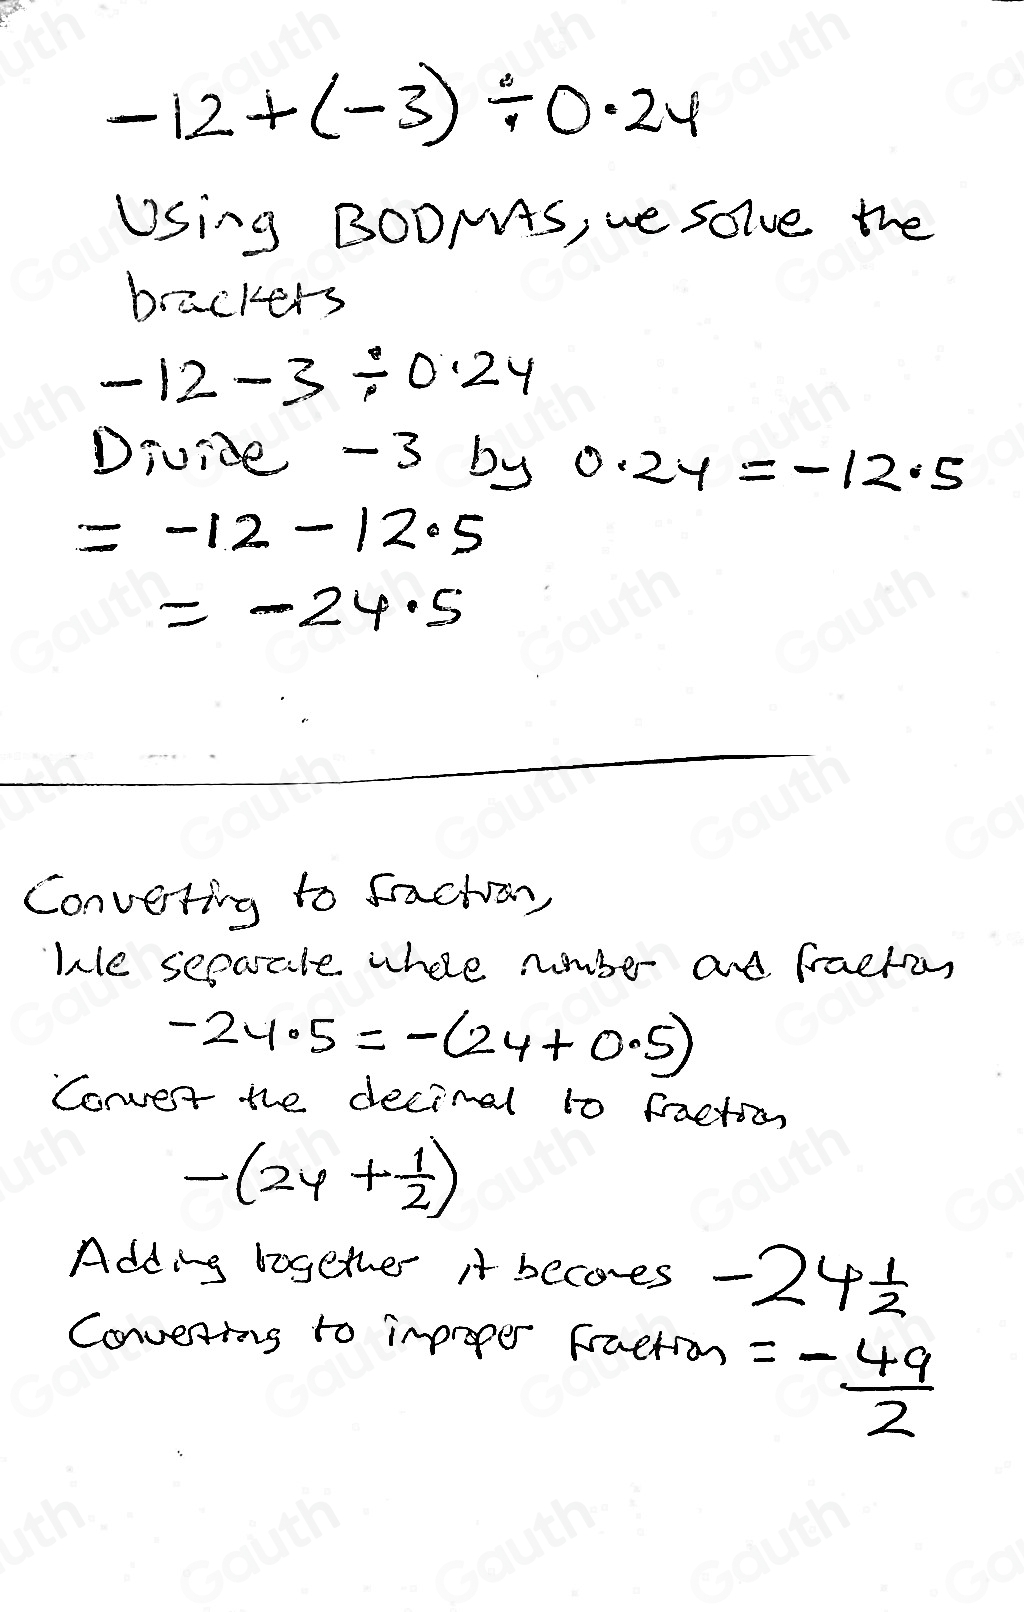 -12+(-3)÷0.24
Using BODMAS, we solve the
brackets
-12-3÷0.24
Divide -3 by 0.24=-12.5
= -12-12.5
= -24.5
Converting to fraction,
We separate whole number and fraction
-24.5=-(24+0.5)
Convert the decimal to fraction
-(24+1/2)
Adding together it becomes -24 1/2
Converting to improper fraction = -49/2